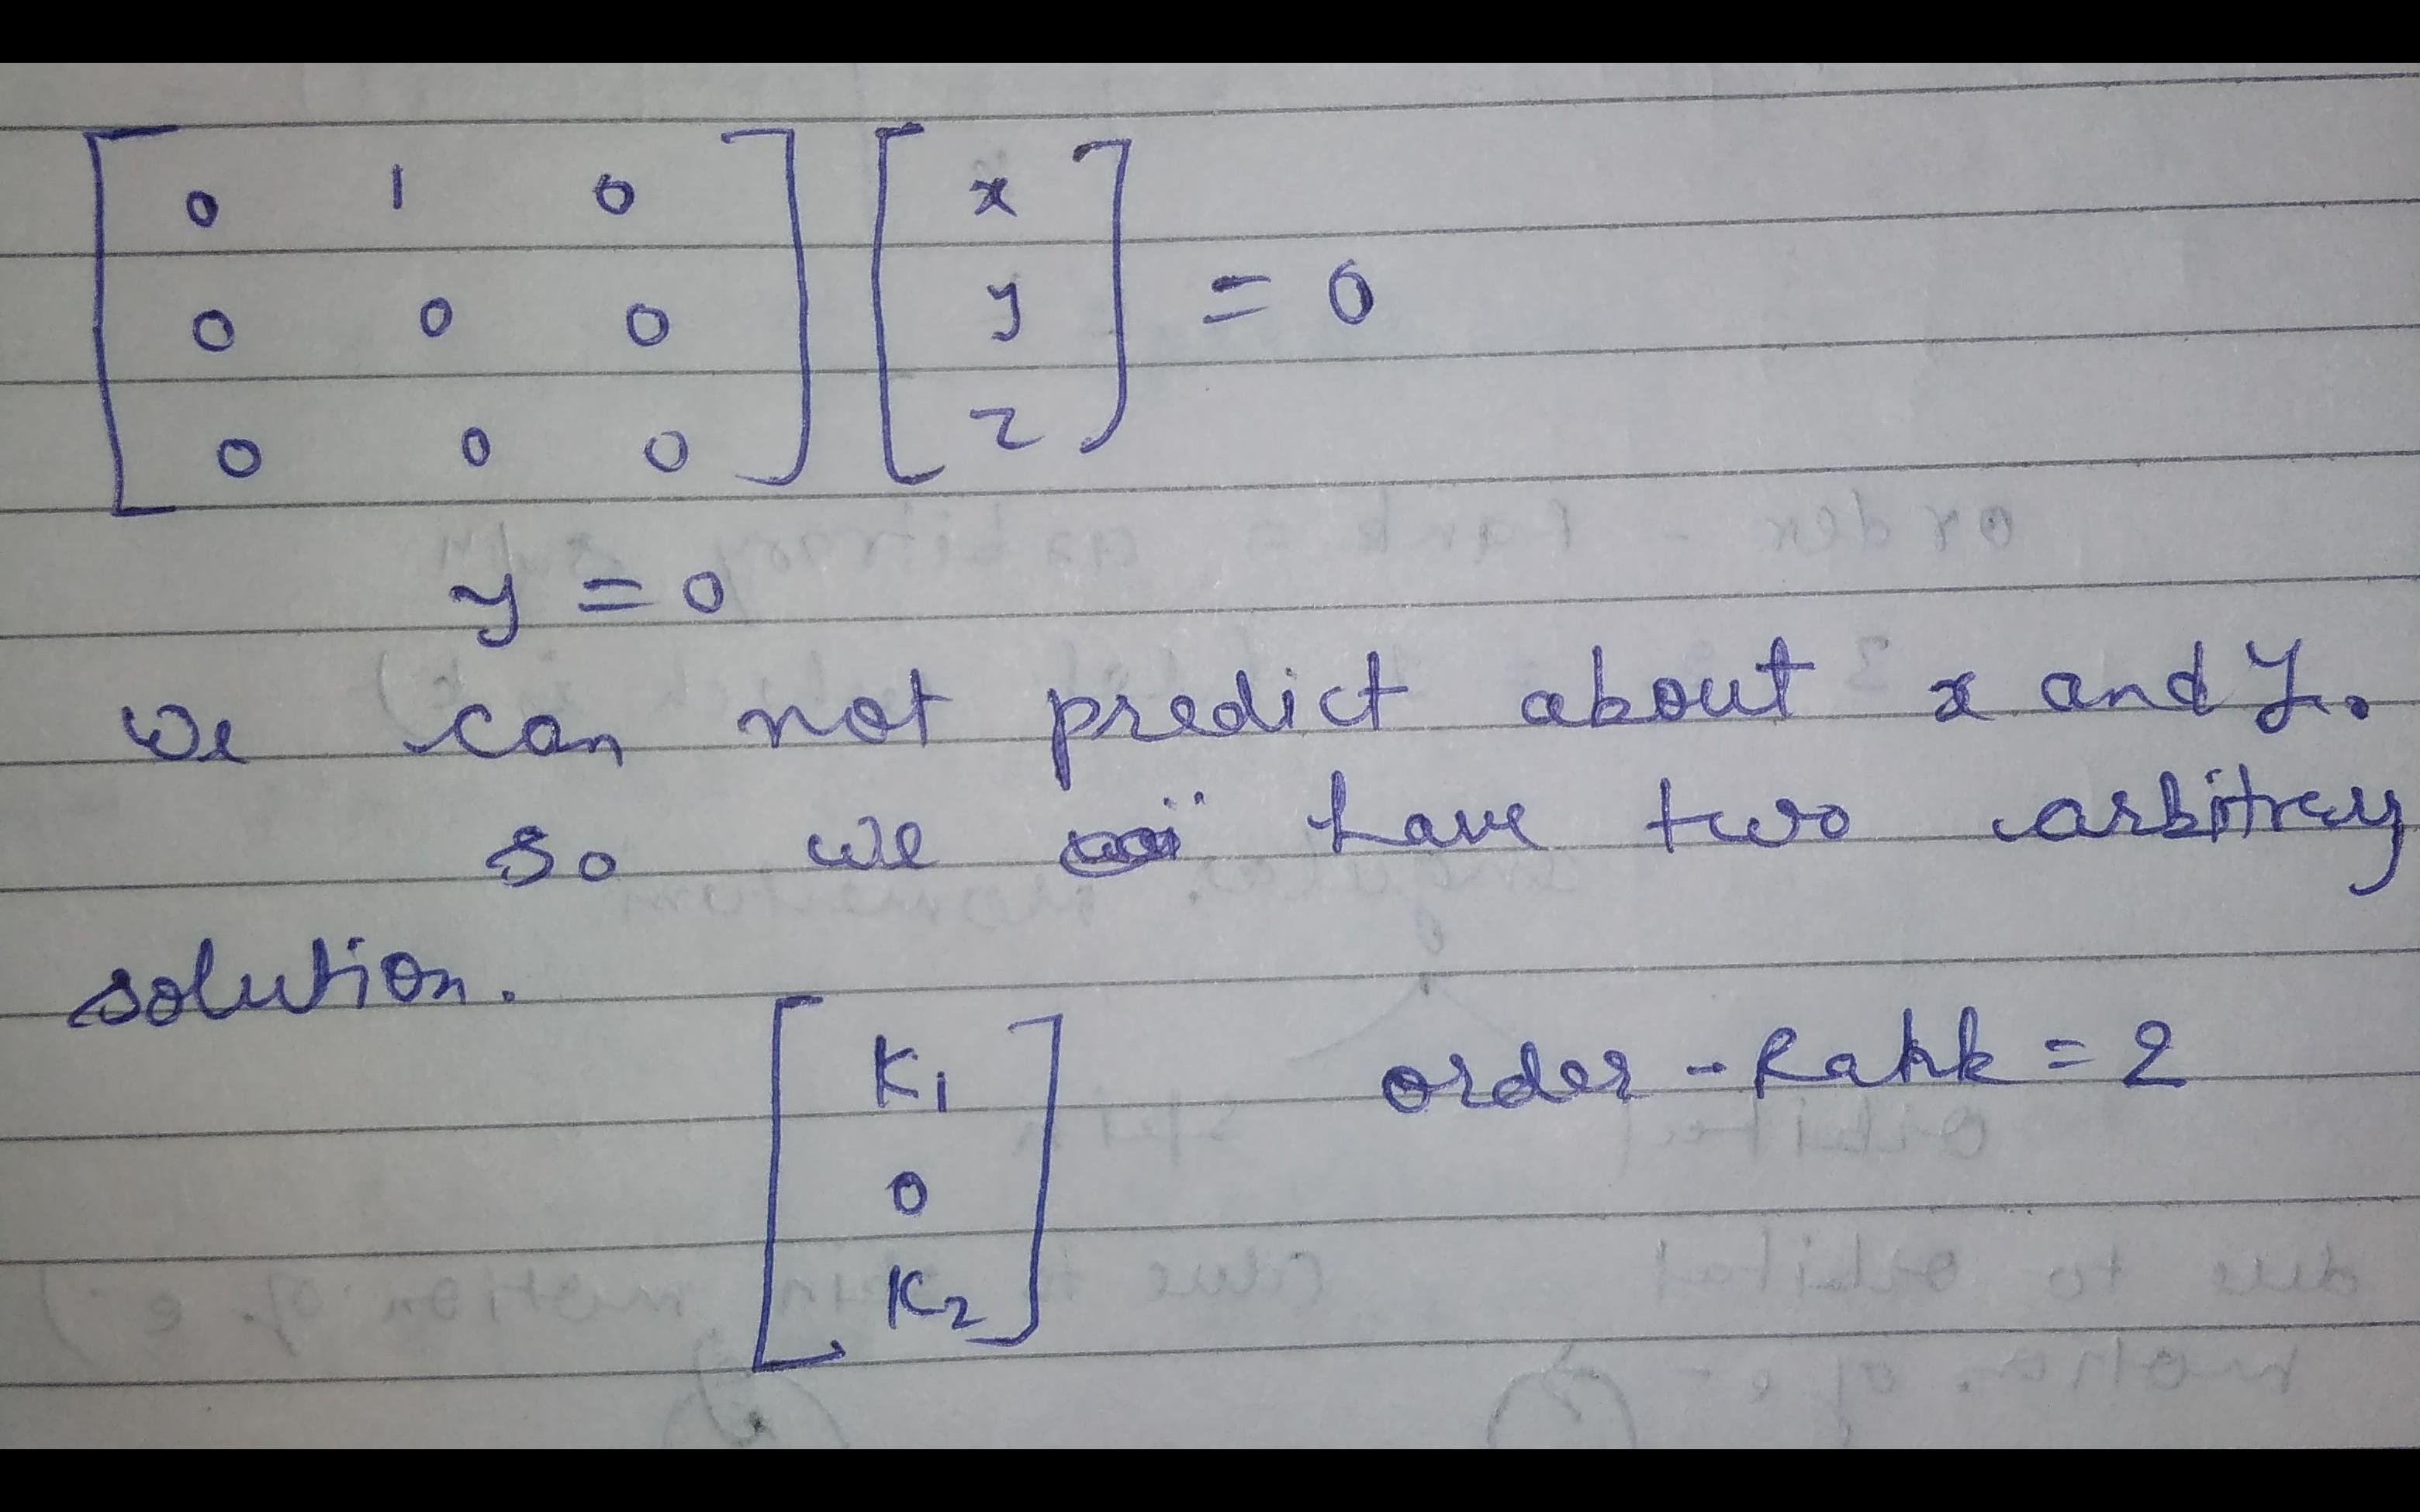 [ 0 1 0 ] [ x ]
[ 0 0 0 ] [ y ] = 0
[ 0 0 0 ] [ z ]
y = 0
we can not predict about x and y.
so we have two arbitrary
solution.
[ K1 ]
[ 0 ] order - Rank = 2
[ K2 ]